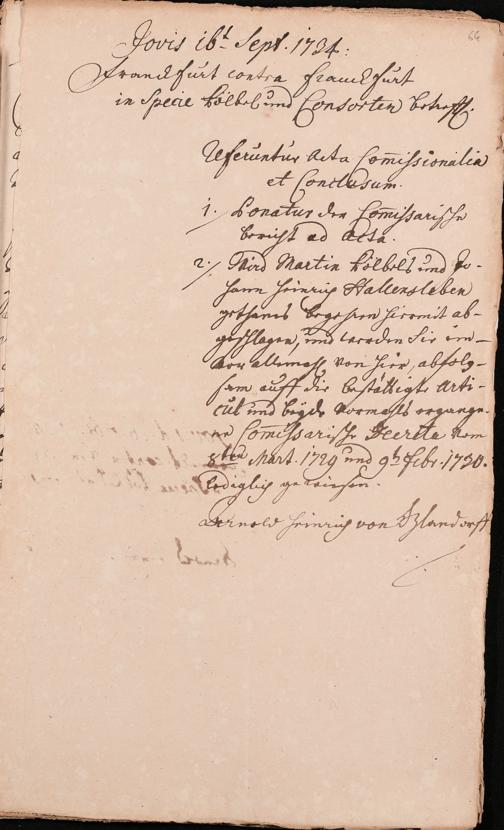 66
Jovis 16t. Sept. 1734:
Franckfurt contra Franckfurt
in Specie Kölbel und Consorten betreff.
Referuntur Acta Commissionalia
et Conclusum.
1. Ponatur der Commissarische
bericht ad Acta.
2. Wird Martin Kölbels und Jo-
hann Heinrich Hallensleben
gethanes begehren hiermit ab-
geschlagen, und werden Sie im-
von hier, abfolg-
sam auff die bestättigte Arti-
cul und beyde vormahls ergange-
ne Commissarische Decreta vom
8ten Mart. 1729 und 9ten Febr. 1730.
lediglich gewiesen.
Arnold Heinrich von Glandorff